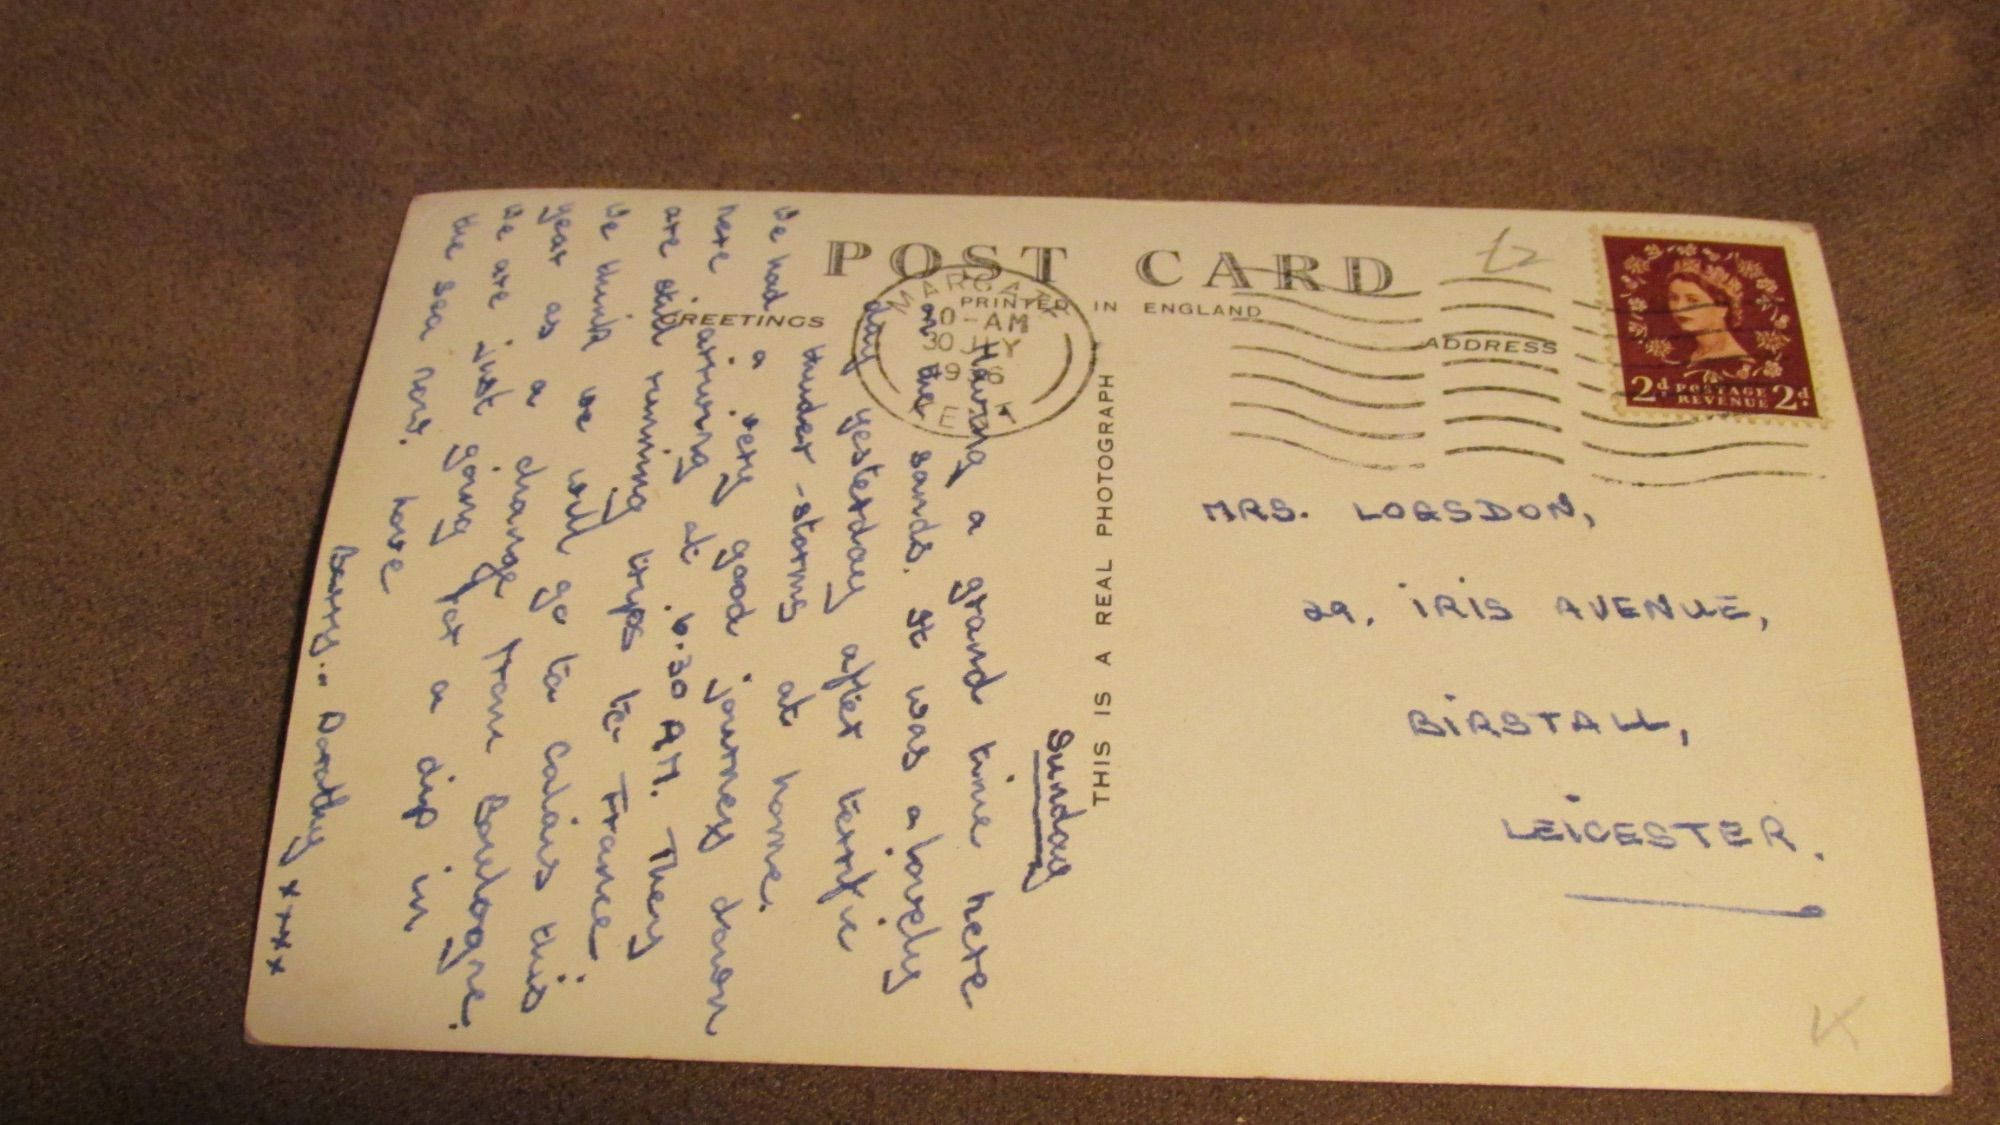 POST CARD
PRINTED IN ENGLAND
GREETINGS
ADDRESS
MARGATE
10-AM
30 JLY
1956
KENT
2d POSTAGE REVENUE 2d
THIS IS A REAL PHOTOGRAPH
Sunday
Having a grand time here
on the sands. It was a lovely
day yesterday after terrific
thunder-storms at home.
We had a very good journey down
here arriving at 6.30 AM. They
are still running trips to France.
We think we will go to Calais this
year as a change from Boulogne.
We are just going for a dip in
the sea now. Love
Barry.. Dorothy xxxx
MRS. LOGSDON,
29, IRIS AVENUE,
BIRSTALL,
LEICESTER.